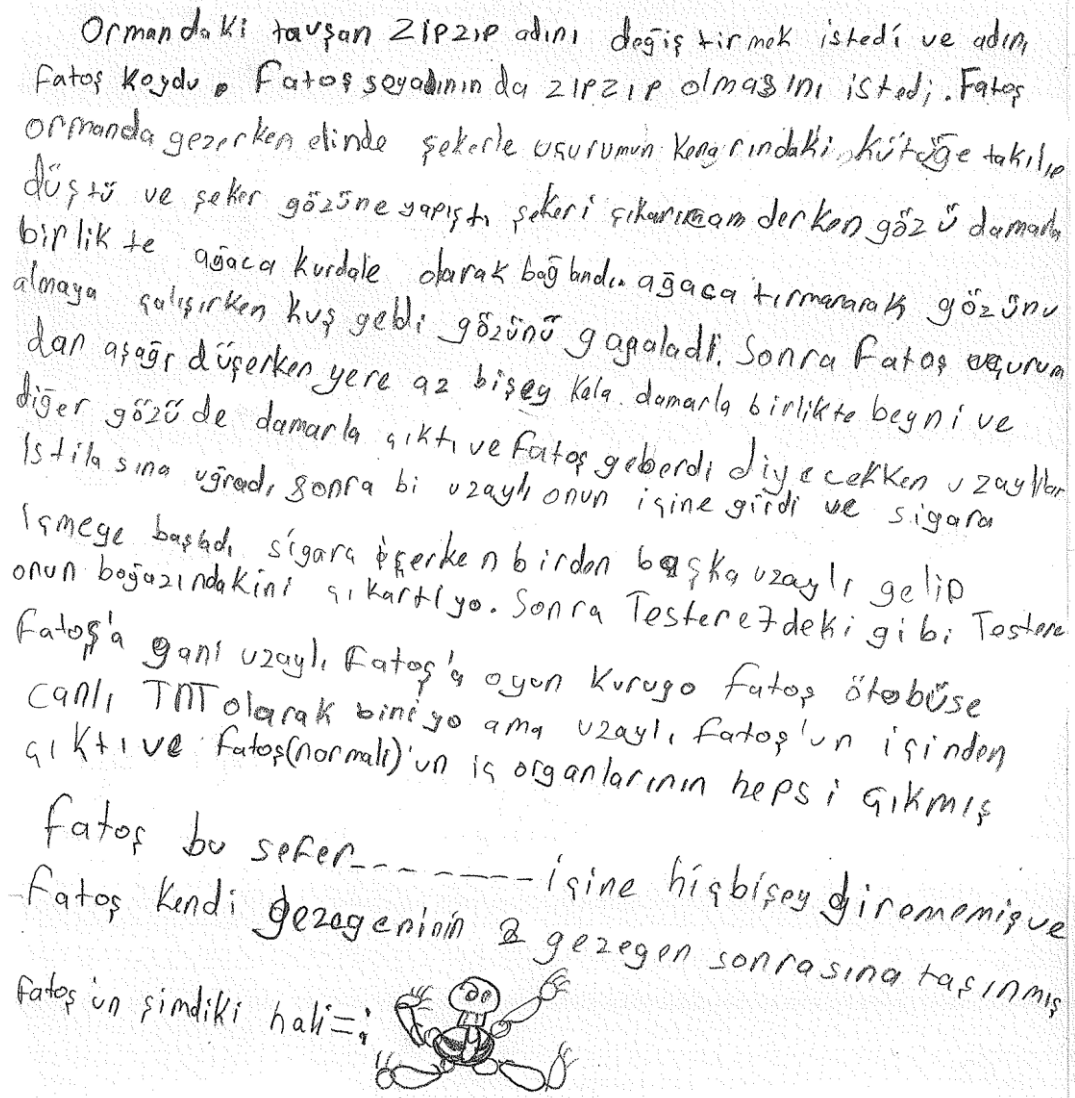 Ormandaki tavşan zıpzıp adını değiştirmek istedi ve adın,
Fatoş koydu. Fatoş soyadınında zıpzıp olmasını istedi. Fatoş
ormanda gezerken elinde şekerle uçurumun kenarındaki kütüğe takılıp
düştü ve şeker gözüne yapıştı şekeri çıkarıcam derken gözü damarla
birlikte ağaca kurdale olarak bağlandı. ağaca tırmanarak gözünü
almaya çalışırken kuş geldi gözünü gagaladı. Sonra Fatoş uçurum
dan aşağı düşerken yere az bişey kala damarla birlikte beyni ve
diğer gözüde damarla çıktı ve Fatoş geberdi diyecekken uzaylılar
istilasına uğradı, sonra bi uzaylı onun içine girdi ve sigara
içmeye başladı, sigara içerken birden başka uzaylı gelip
onun boğazındakini çıkartıyo. Sonra Testere7deki gibi Testere
Fatoş'a yani uzaylı Fatoş'a oyun kuruyo Fatoş otobüse
canlı TNT olarak biniyo ama uzaylı Fatoş'un içinden
çıktı ve Fatoş(normali)'un iç organlarının hepsi çıkmış
Fatoş bu sefer-------- içine hiçbişey girememiş ve
Fatoş kendi gezegeninin 2 gezegen sonrasına taşınmış
Fatoş'un şimdiki hali=: